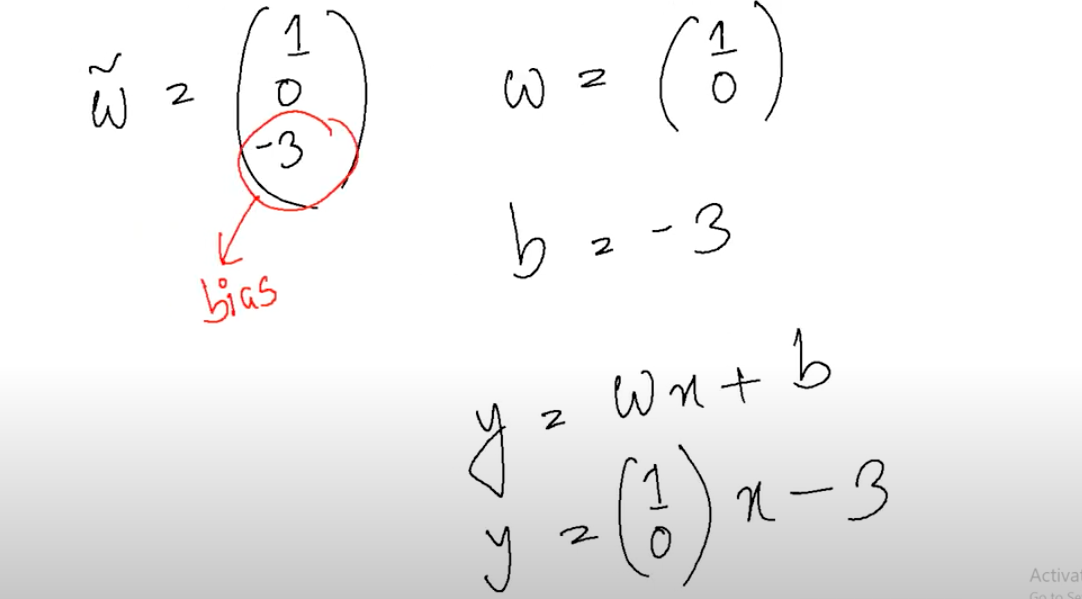 w̃ = (1 0 -3)
w = (1 0)
bias
b = -3
y = wx + b
y = (1 0) x - 3
Activat
Go to Se